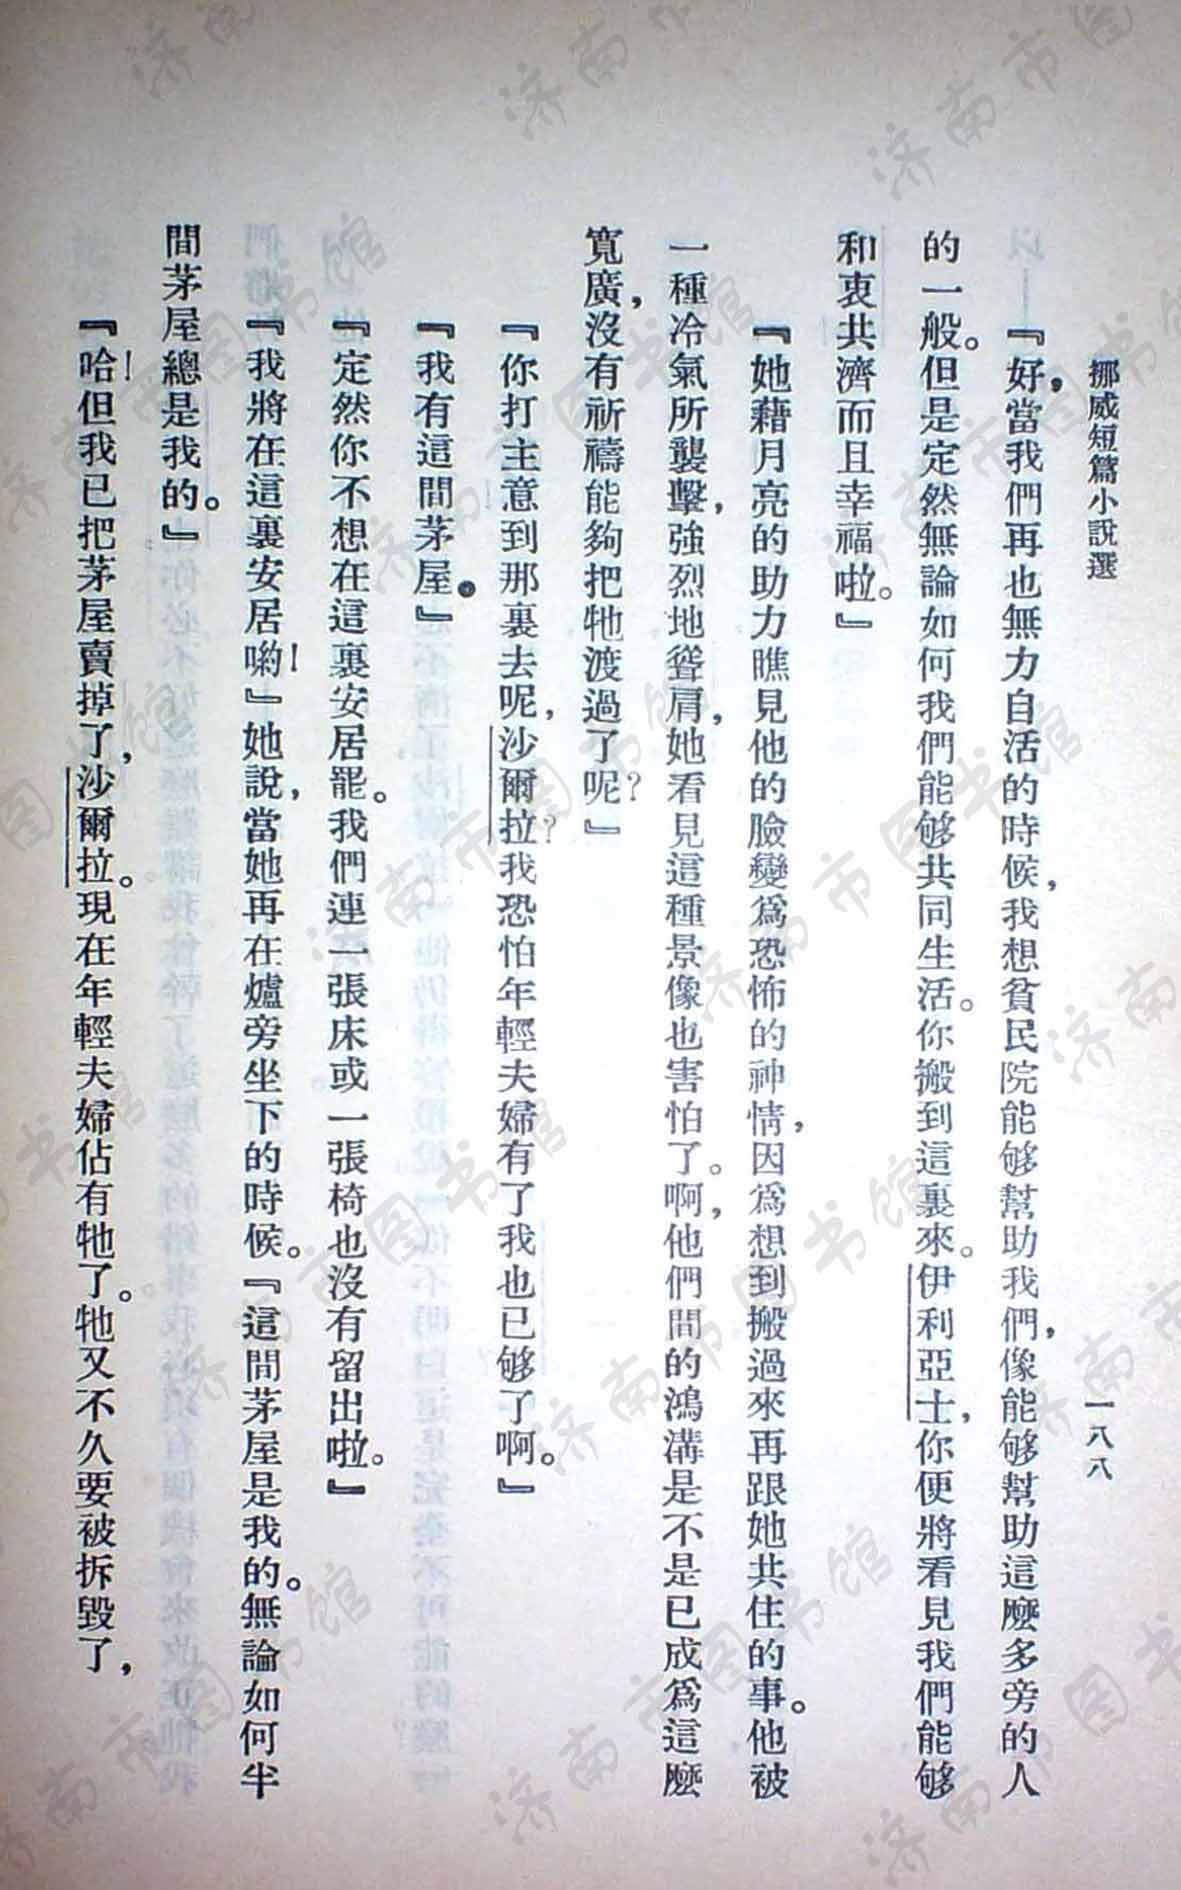 挪威短篇小說選　一八八
『好，當我們再也無力自活的時候，我想貧民院能够幫助我們，像能够幫助這麼多旁的人
的一般。但是定然無論如何我們能够共同生活。你搬到這裏來。伊利亞士，你便將看見我們能够
和衷共濟而且幸福啦。』
『她藉月亮的助力瞧見他的臉變爲恐怖的神情，因爲想到搬過來再跟她共住的事。他被
一種冷氣所襲擊，強烈地聳肩，她看見這種景像也害怕了。啊，他們間的鴻溝是不是已成爲這麼
寬廣，沒有祈禱能夠把牠渡過了呢？』
『你打主意到那裏去呢，沙爾拉？我恐怕年輕夫婦有了我也已够了啊。』
『我有這間茅屋。』
『定然你不想在這裏安居罷。我們連一張床或一張椅也沒有留出啦。』
『我將在這裏安居喲！』她說，當她再在爐旁坐下的時候。『這間茅屋是我的。無論如何半
間茅屋總是我的。』
『哈！但我已把茅屋賣掉了，沙爾拉。現在年輕夫婦佔有牠了。牠又不久要被拆毀了，
济南市图书馆